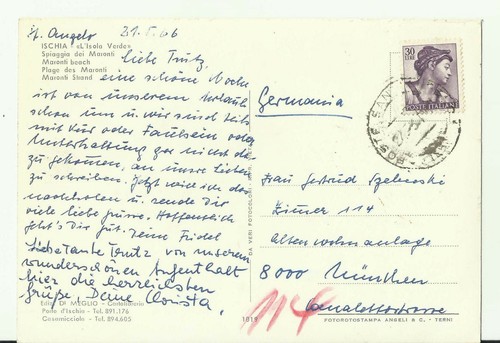 St. Angelo 21.5.66
ISCHIA «L'Isola Verde»
Spiaggia dei Maronti
Maronti beach
Plage des Maronti
Maronti Strand
Liebe Trutz,
eine schöne Woche
ist von unserem Urlaub
schon um u. wir sind
mit Kur oder Faulsein oder
Unterhaltung gar nicht da-
zu gekommen, an unsre Lieben
zu schreiben. Jetzt will ich das
nachholen u. sende Dir
viele liebe Grüsse. Hoffentlich
geht's Dir gut. Deine Friedel
Liebe Tante Trutz von unserem
wunderschönen Aufenthalt
hier die herzlichsten
Grüße, Deine Christa.
Ediz. DI MEGLIO - Cartolibreria
Porto d'Ischia - Tel. 891.176
Casamicciola - Tel. 894.605
DA VERI FOTOCOLOR
1019
30
LIRE
POSTE ITALIANE
POSTE SANT
Germania
Frau Gertrud
Zimmer 114
Altenwohnanlage
8000 München
114
FOTOROTOSTAMPA ANGELI & C. - TERNI